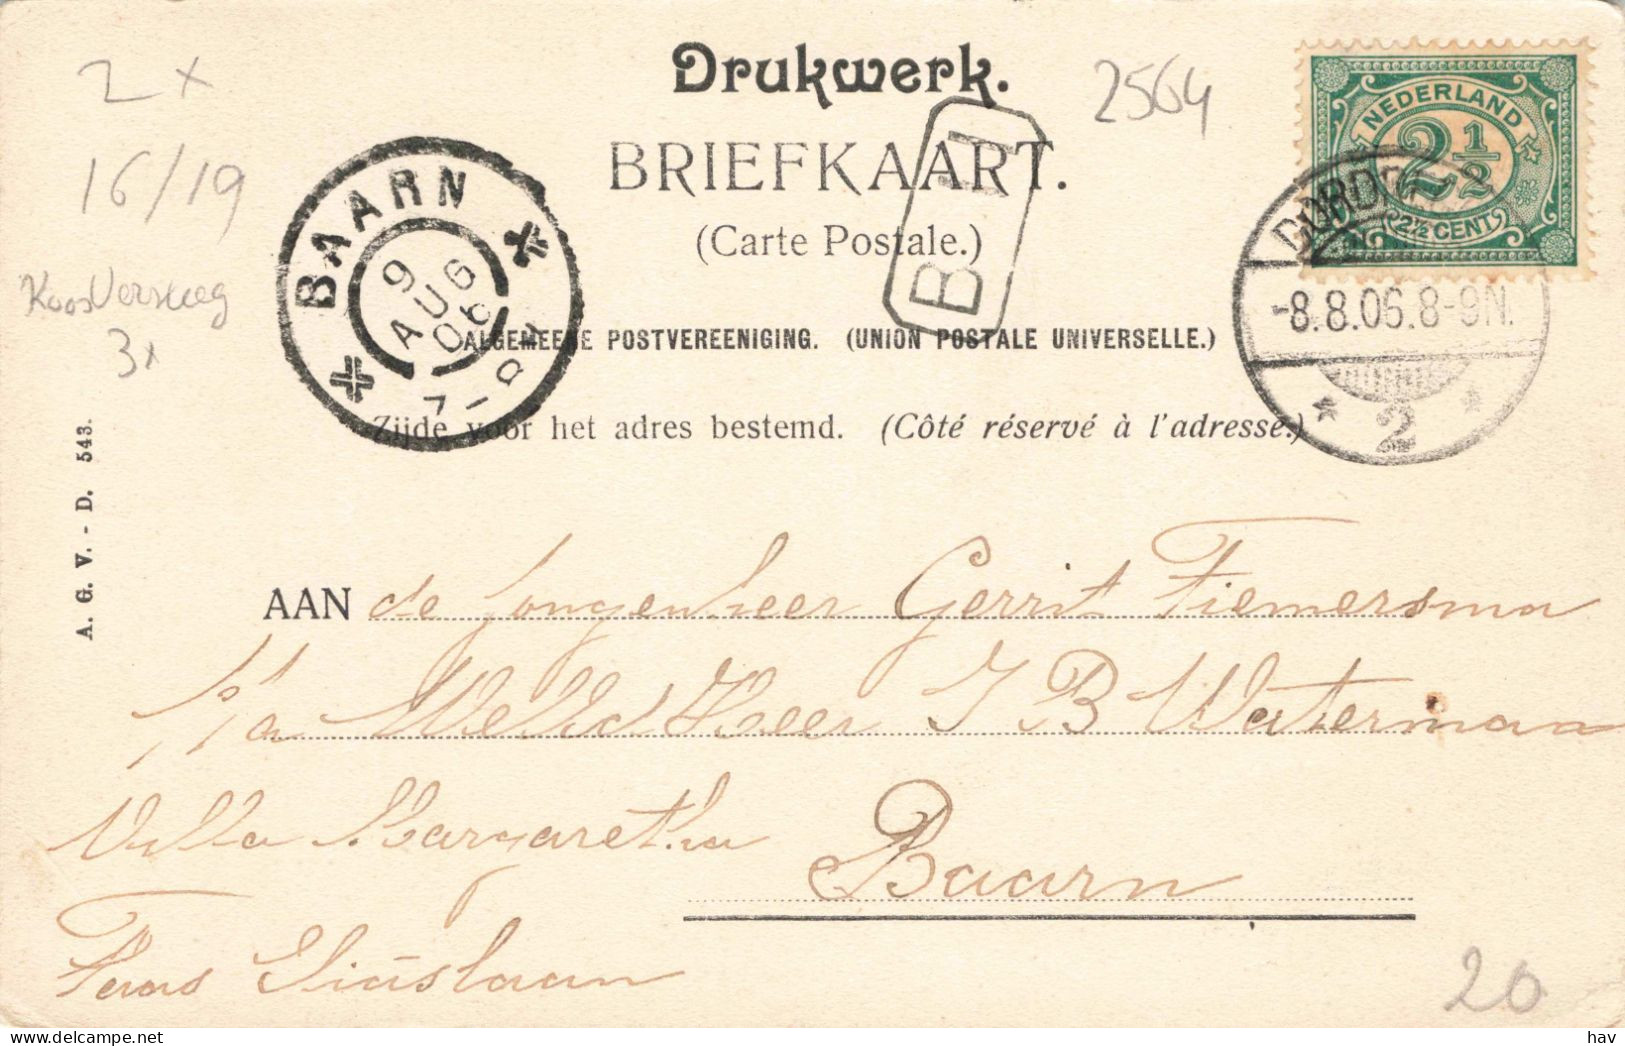 Drukwerk.
2 x
2564
NEDERLAND
2 1/2
2½ CENT
BRIEFKAART.
16/19
BAARN
9 AUG 06
7-8
(Carte Postale.)
B 1
DORDRECHT
-8.8.06.8-9N.
2
Koos Versteeg
3x
ALGEMEENE POSTVEREENIGING. (UNION POSTALE UNIVERSELLE.)
Zijde voor het adres bestemd. (Côté réservé à l'adresse.)
A. G. V. - D. 543.
AAN de Jongenheer Gerrit Fiemersma
p/a Weled Heer J B Waterman
Villa Margaretha
Baarn
Piuslaan
20
www.delcampe.net
hav